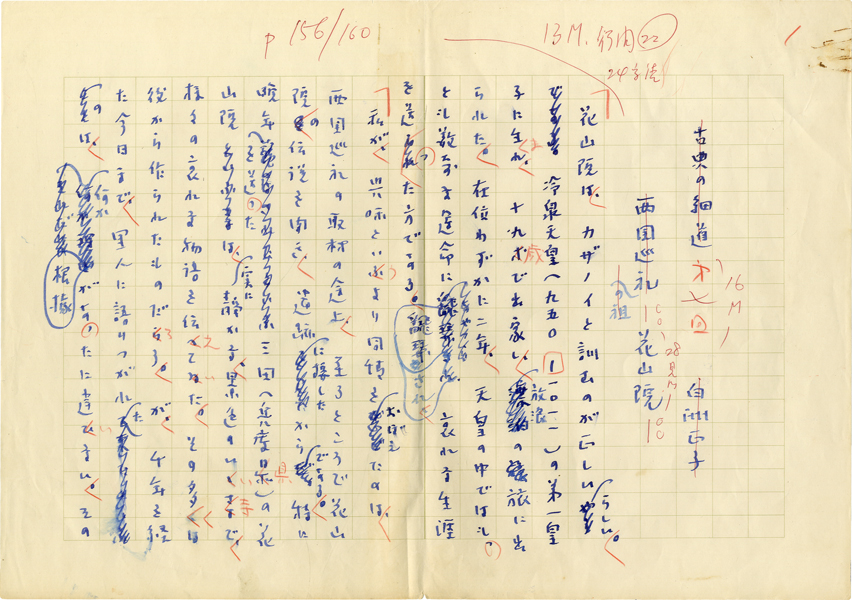 P 156/160
13M.行内22
24字詰
古典の細道 第七回 白洲正子
16M
西国巡礼の祖 花山院
花山院は、カザノイと訓むのが正しいらしい。
冷泉天皇(九五〇|一〇一一)の第一皇
子に生れ、十九才で出家し、放浪の旅に出
られた。在位わずかに二年。天皇の中でも、
も数奇な運命に翻弄され、哀れな生涯
を送った方である。
私が、興味というより同情をおぼえたのは、
西国巡礼の取材の途上、至るところで花山
院の伝説を聞き、遺跡に接した から である。特に
晩年を送った 三田(兵庫県)の花
山院は、実に静かな景色のいい寺で、
様々の哀れな物語を伝えていた。その多くは
後から作られたものだろう。が、千年を経
た今日まで、里人に語りつがれた
のは、
何か 根拠があったに違いない。その